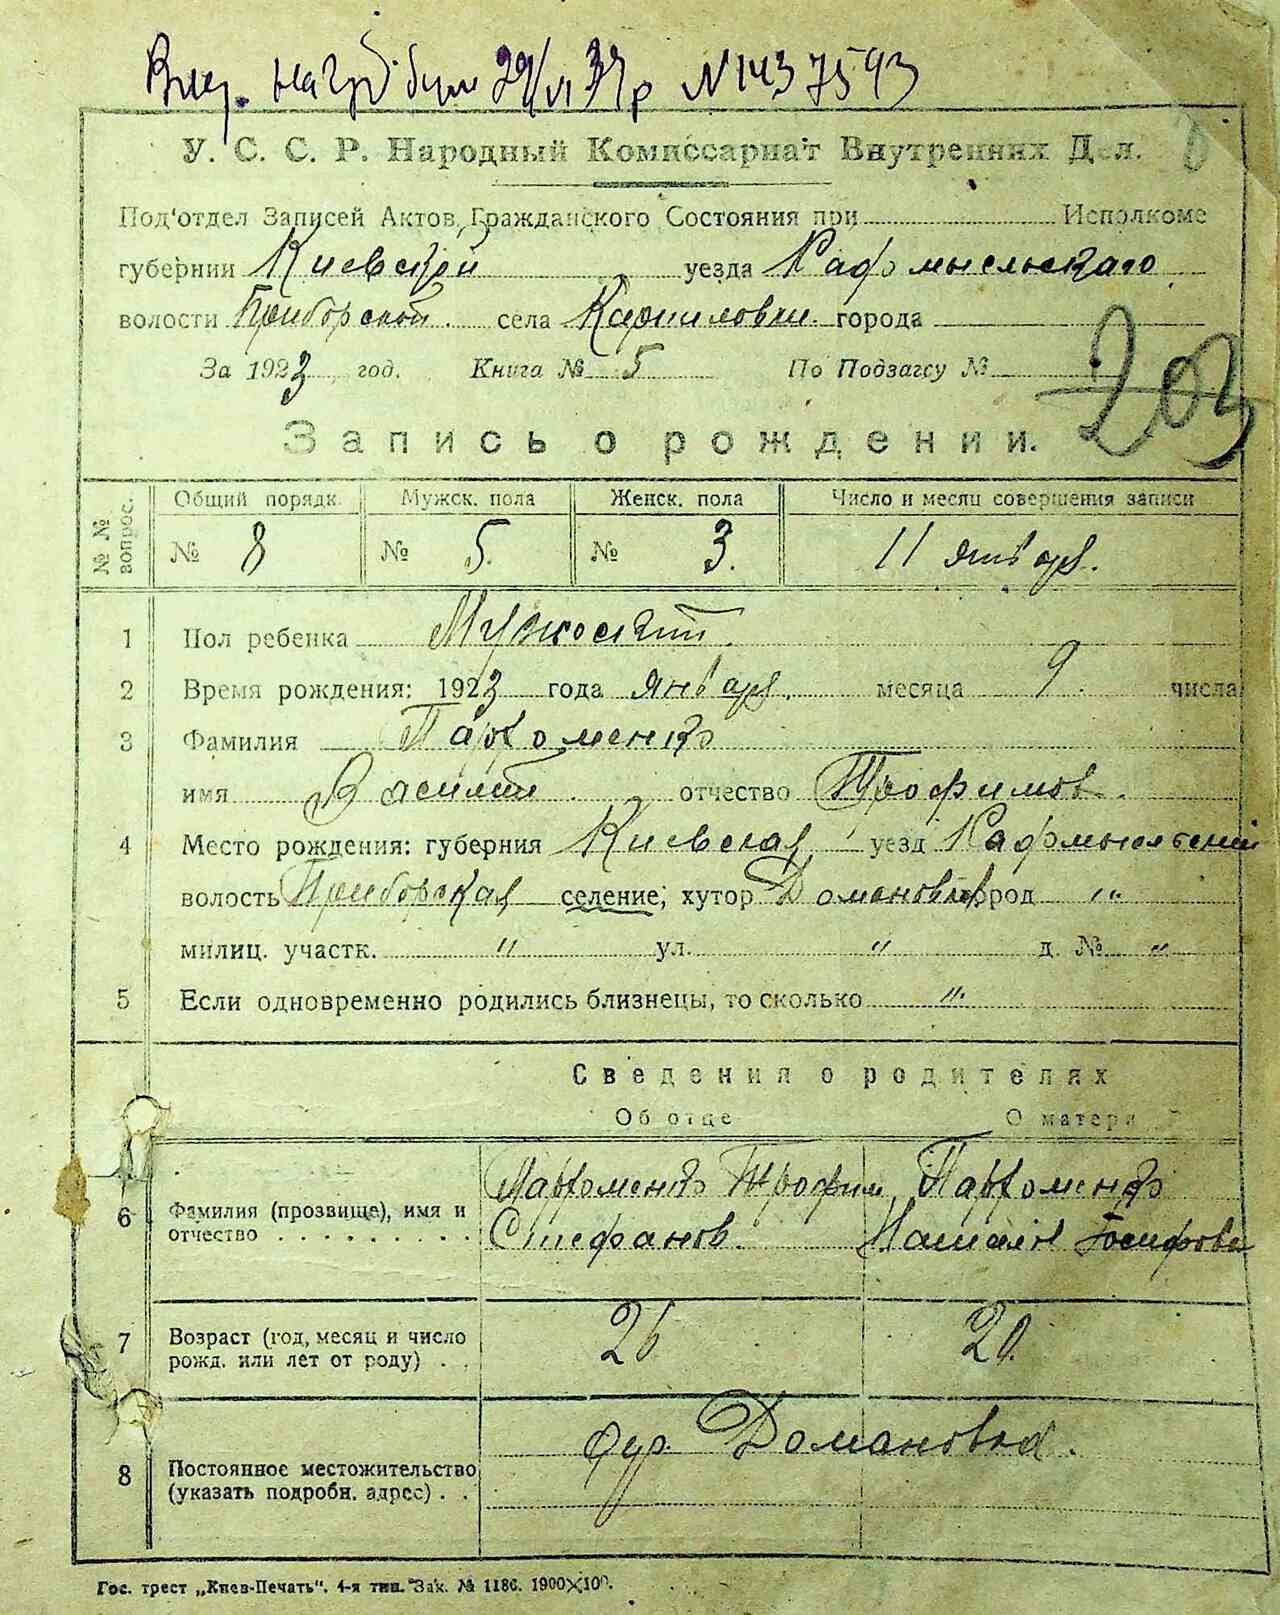 29/VI 37р №1437543
У. С. С. Р. Народный Комиссариат Внутренних Дел.
Под'отдел Записей Актов Гражданского Состояния при Исполкоме
губернии Киевской уезда Радомысльскаго
волости Приборской села Карпиловки города
За 1923 год. Книга № 5 По Подзагсу №
203
Запись о рождении.
№ № вопрос. Общий порядк. Мужск. пола Женск. пола Число и месяц совершения записи
№ 8 № 5. № 3. 11 января.
1 Пол ребенка Мужеский.
2 Время рождения: 1923 года января месяца 9. числа
3 Фамилия Пархоменко
имя Василий отчество Трофимов.
4 Место рождения: губерния Киевская уезд Радомысльский
волость Приборская селение, хутор Домановка город "
милиц. участк. " ул. " д. № "
5 Если одновременно родились близнецы, то сколько "
Сведения о родителях
Об отце О матери
6 Фамилия (прозвище), имя и отчество . . . . . . . . . Пархоменко Трофим Стефанов. Пархоменко Наталия Иосифова
7 Возраст (год, месяц и число рожд. или лет от роду) . . 26 20.
8 Постоянное местожительство (указать подробн. адрес) . . дер. Домановка.
Гос. трест „Киев-Печать". 4-я тип. Зак. № 1186. 1900×100.